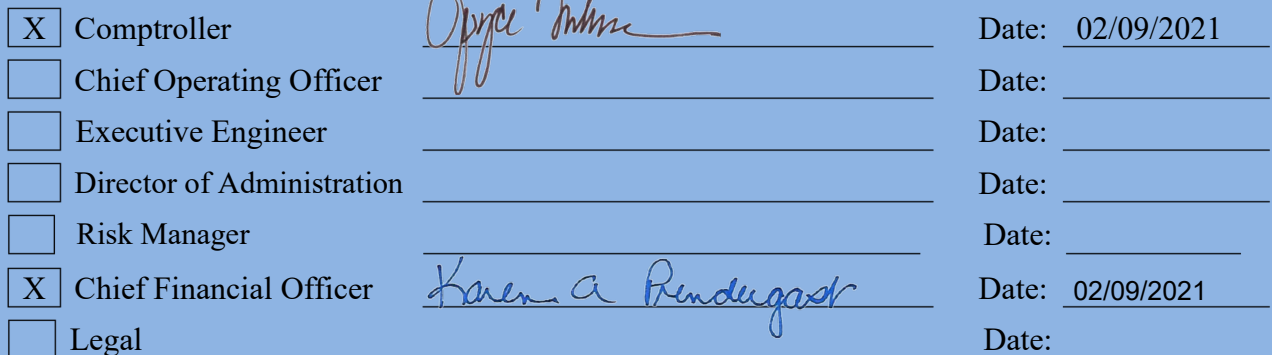 X Comptroller Date: 02/09/2021
Chief Operating Officer Date:
Executive Engineer Date:
Director of Administration Date:
Risk Manager Date:
X Chief Financial Officer Karen A Prendergast Date: 02/09/2021
Legal Date: